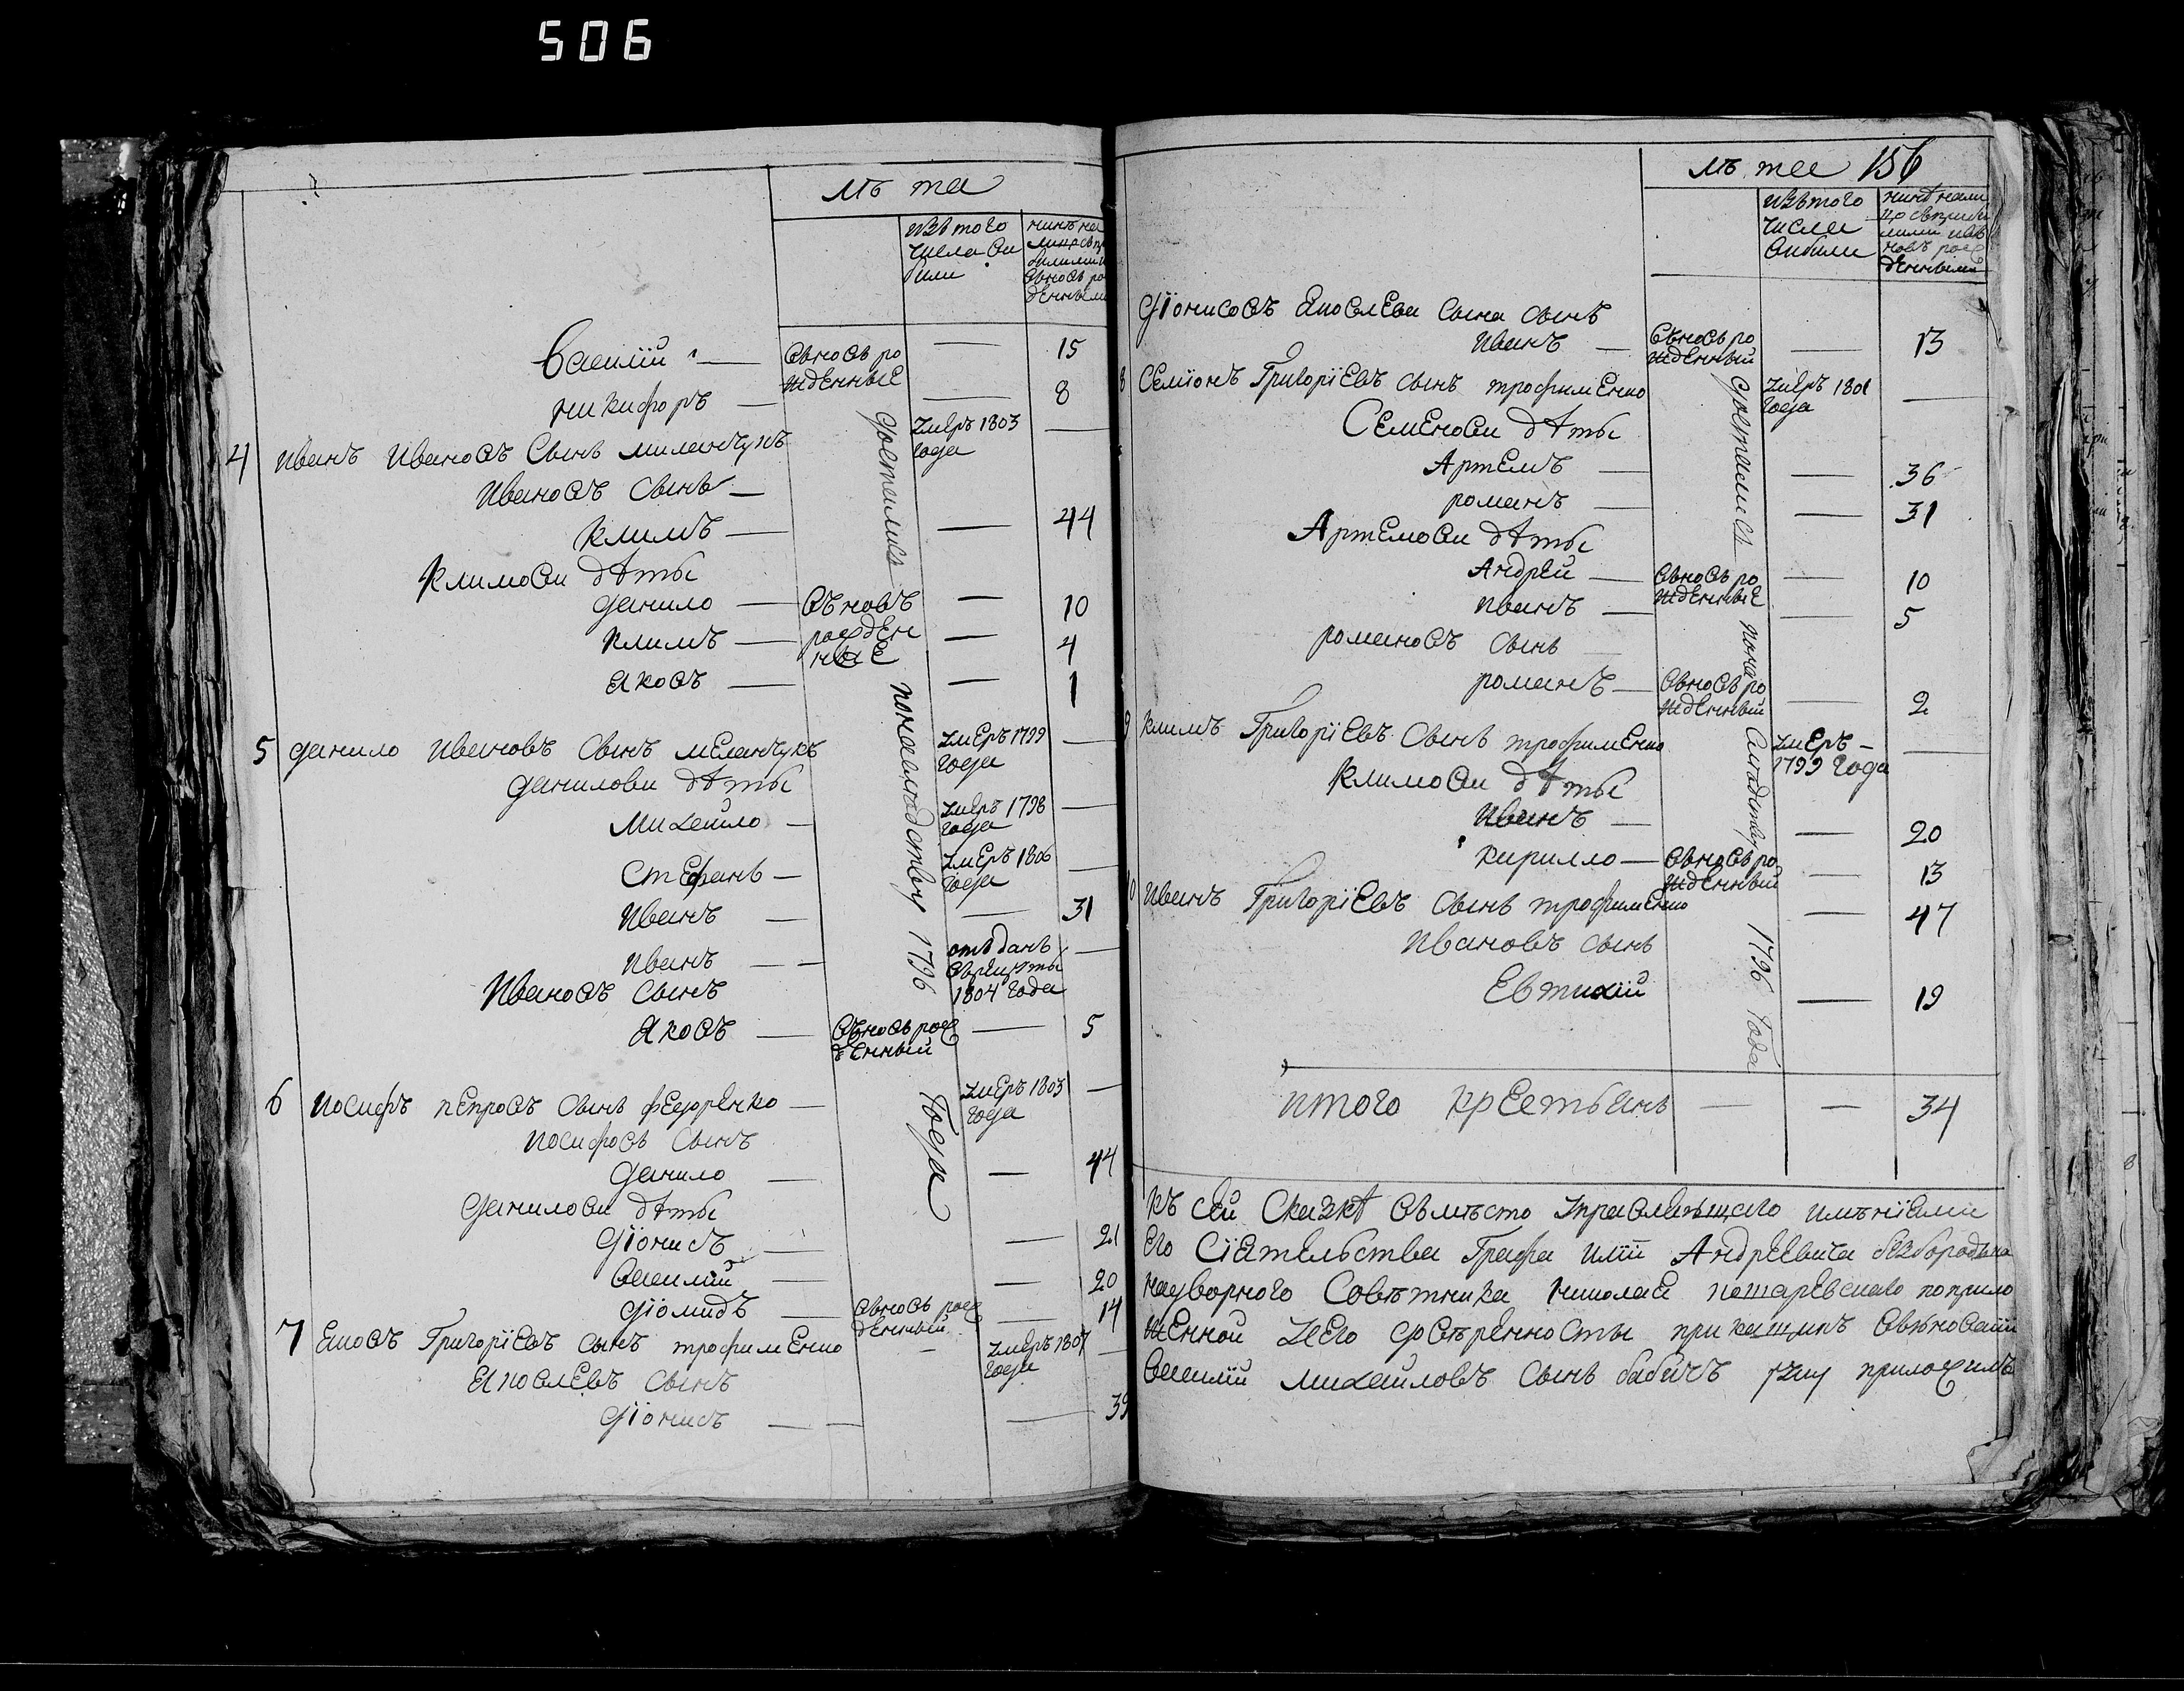 506
лѣта
изъ того числа выбыли
Василій вновь рожденные 15
никифоръ 8
4 иванъ ивановъ сынъ миланчукъ умеръ 1803 года
ивановъ сынъ
климъ 44
климови дѣты
данило въновъ рожденные 10
климъ 4
яковъ 1
5 данило ивановъ сынъ меланчукъ умеръ 1799 года
данилови дѣты
михайло умеръ 1798 года
стефанъ умеръ 1806 года
иванъ 31
иванъ отъданъ врекруты 1804 года
ивановъ сынъ
яковъ въновь рожденный 5
6 иосифъ петровъ сынъ федоренко умеръ 1803 года
иосифовъ сынъ
данило 44
данилови дѣты
діонисъ 21
василій 20
діомидъ вновь рожденный 14
7 яковъ Григоріевъ сынъ трофименко умеръ 1807 года
яковлевъ сынъ
діонисъ 39
досталися по наслѣдству 1796 Года
лѣта 156
изъ того числа выбили
діонисовъ яковлева сына сынъ
иванъ вновь рожденный 13
8 Семіонъ Григоріевъ сынъ трофименко умеръ 1801 года
Семенови дѣты
Артемъ 36
романъ 31
Артемови дѣты
Андрей вновь рожденные 10
иванъ 5
романовъ сынъ
романъ вновь рожденный 2
9 климъ Григоріевъ сынъ трофименко умеръ 1799 года
климови дѣты
иванъ 20
кирилло вновь рожденный 13
10 иванъ Григоріевъ сынъ трофименко 47
ивановъ сынъ
Евтихій 19
досталися по наслѣдству 1796 Года
итого крестьянъ 34
къ сей Сказкѣ вмѣсто управляющаго имѣніями
его Сіательства Графа иліи Андреевича безбородька
надворного Совѣтника николая по прило
женной его довѣренносты прикащикъ
василій михайловъ сынъ бабичъ руку приложилъ